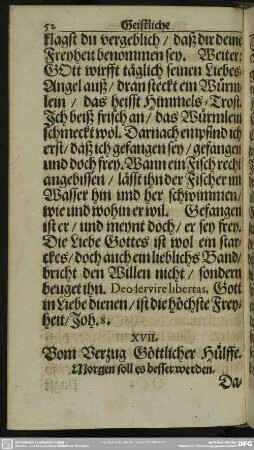 52 Geistliche
klagst du vergeblich / daß dir deine
Freyheit benommen sey. Weiter:
GOtt wirfft täglich seinen Liebes-
Angel auß / dran steckt ein Würm-
lein / das heisst Himmels-Trost.
Ich beiß frisch an / das Würmlein
schmeckt wol. Darnach empfind ich
erst / daß ich gefangen sey / gefangen
und doch frey. Wann ein Fisch recht
angebissen / lässt ihn der Fischer im
Wasser hin und her schwimmen /
wie und wohin er wil. Gefangen
ist er / und meynt doch / er sey frey.
Die Liebe Gottes ist wol ein star-
ckes / doch auch ein lieblichs Band /
bricht den Willen nicht / sondern
beuget ihn. Deo servire libertas. Gott
in Liebe dienen / ist die höchste Frey-
heit / Joh. 8.
XVII.
Vom Verzug Göttlicher Hülffe.
Morgen soll es besser werden.
Da-